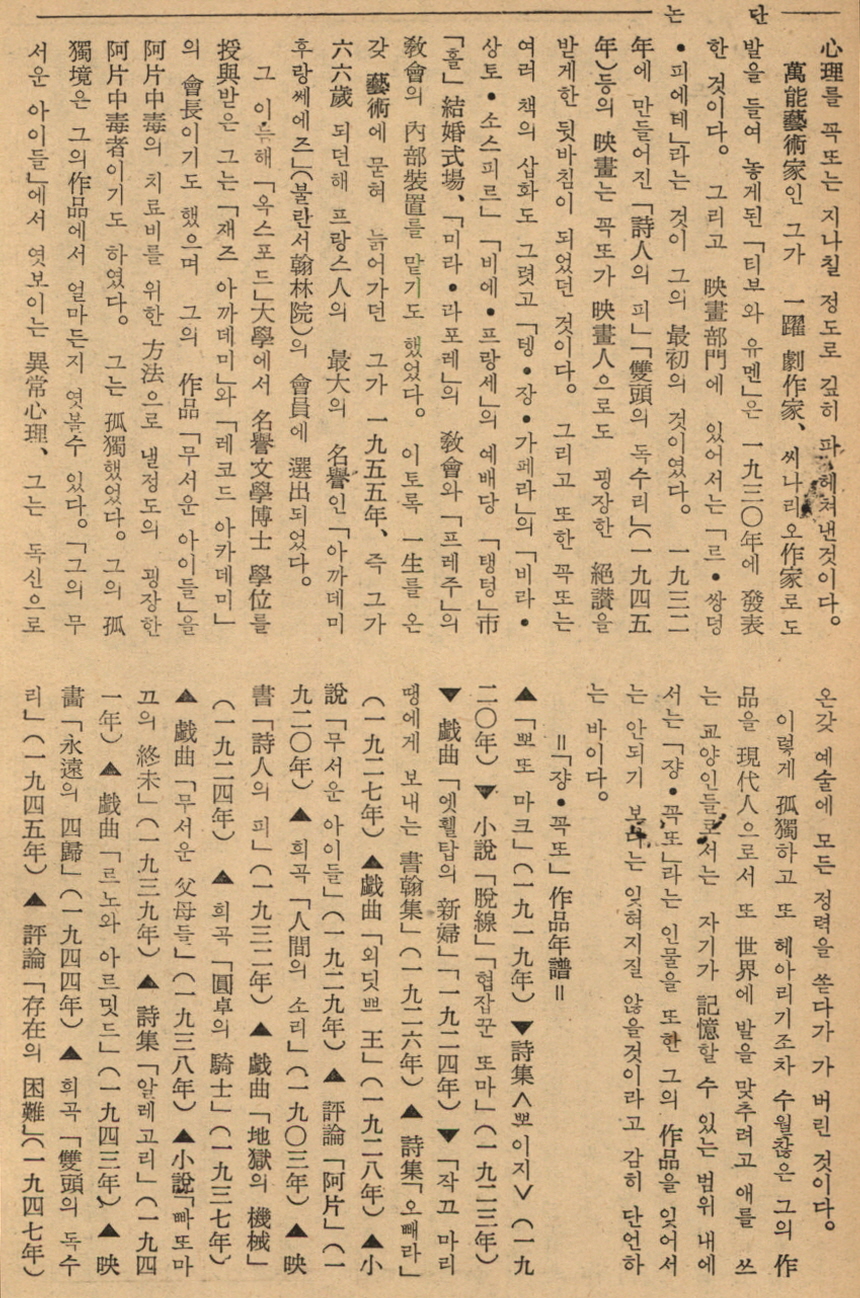 단
논
心理를 꼭또는 지나칠 정도로 깊히 파헤쳐낸것이다。
萬能藝術家인 그가 一躍 劇作家、씨나리오作家로도
발을 들여 놓게된「티부와 유멘」은 一九三〇年에 發表
한 것이다。 그리고 映畫部門에 있어서는「르•쌍덩
•피에테」라는 것이 그의 最初의 것이였다。 一九三二
年에 만들어진「詩人의 피」「雙頭의 독수리」(一九四五
年)등의 映畫는 꼭또가 映畫人으로도 굉장한 絕讃을
받게한 뒷바침이 되었던 것이다。 그리고 또한 꼭또는
여러 책의 삽화도 그렷고「텡•장•가페라」의「비라•
상토•소스피르」「비에•프랑세」의 예배당「탱텅」市
「홀」結婚式場、「미라•라포레」의 敎會와「프레주」의
敎會의 內部裝置를 맡기도 했었다。 이토록 一生를 온
갖 藝術에 묻혀 늙어가던 그가 一九五五年、즉 그가
六六歲 되던해 프랑스人의 最大의 名譽인「아까데미
후랑쎄에즈」(불란서翰林院)의 會員에 選出되었다。
그 이듬해「옥스포드」大學에서 名譽文學博士 學位를
授與받은 그는「재즈 아까데미」와「레코드 아카데미」
의 會長이기도 했으며 그의 作品「무서운 아이들」을
阿片中毒의 치료비를 위한 方法으로 낼정도의 굉장한
阿片中毒者이기도 하였다。 그는 孤獨했었다。그의 孤
獨境은 그의作品에서 얼마든지 엿볼수 있다。「그의 무
서운 아이들」에서 엿보이는 異常心理、그는 독신으로
온갖 예술에 모든 정력을 쏟다가 가 버린 것이다。
이렇게 孤獨하고 또 헤아리기조차 수월찮은 그의 作
品을 現代人으로서 또 世界에 발을 맞추려고 애를 쓰
는 교양인들로서는 자기가 記憶할 수 있는 범위 내에
서는「쟝•꼭또」라는 인물을 또한 그의 作品을 잊어서
는 안되기 보다는 잊혀지질 않을것이라고 감히 단언하
는 바이다。
=「쟝•꼭또」作品年譜=
▲「뽀또 마크」(一九一九年) ▼詩集<뽀이지> (一九
二〇年) ▼ 小說「脫線」「협잡꾼 또마」(一九二三年)
▼ 戱曲「엣휄탑의 新婦」「一九二四年) ▼「작끄 마리
땡에게 보내는 書翰集」(一九二六年) ▲ 詩集「오뻬라」
(一九二七年) ▲戱曲「외딧쁘 王」(一九二八年) ▲小
說「무서운 아이들」(一九二九年) ▲ 評論「阿片」(一
九二〇年) ▲ 희곡「人間의 소리」(一九〇三年) ▲ 映
書「詩人의 피」(一九三二年) ▲ 戱曲「地獄의 機械」
(一九二四年) ▲ 희곡「圓卓의 騎士」(一九三七年)
▲ 戱曲「무서운 父母들」(一九三八年) ▲小說「빠또마
끄의 終末」(一九三九年) ▲ 詩集「알레고리」(一九四
一年) ▲ 戱曲「르노와 아르밋드」(一九四三年) ▲ 映
畵「永遠의 四歸」(一九四四年) ▲ 희곡「雙頭의 독수
리」(一九四五年) ▲ 評論「存在의 困難」(一九四七年)